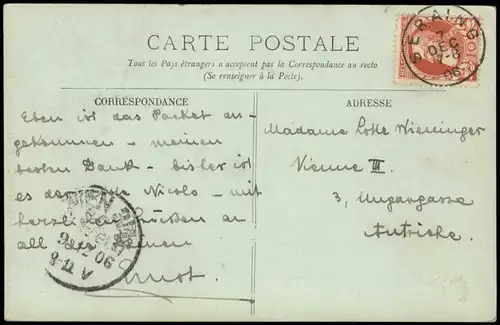 CARTE POSTALE
Tous les Pays étrangers n'acceptent pas la Correspondance au recto
(Se renseigner à la Poste).
SERAING
7
DEC
7-8
06
CORRESPONDANCE
ADRESSE
Eben ist das Packet an-
gekommen – meinen
besten Dank – bisher ist
es der Nicolo – mit
herzlichen Grüssen an
all die Deinen
Ernst.
Madame Lotte Wieninger
Vienne III.
3, Ungargasse
Autriche
WIEN
06